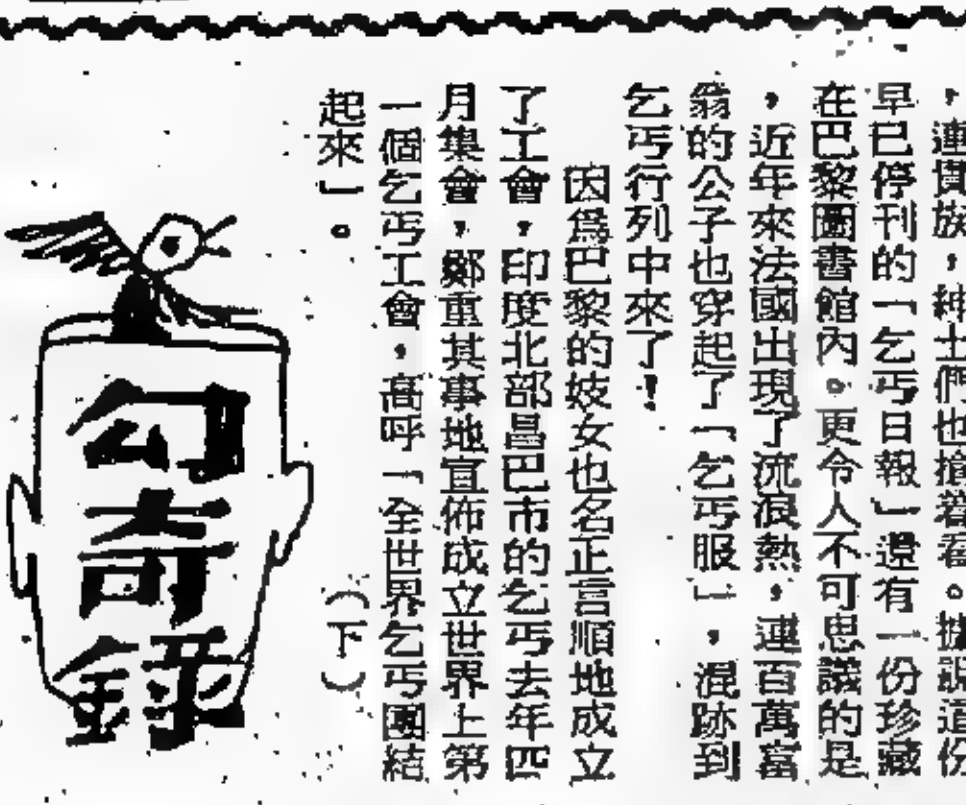 ，連貴族，紳士們也搶着看。據說這份
早已停刊的「乞丐日報」還有一份珍藏
在巴黎圖書館內。更令人不可思議的是
，近年來法國出現了流浪熱，連百萬富
翁的公子也穿起了「乞丐服」，混跡到
乞丐行列中來了！
因爲巴黎的妓女也名正言順地成立
了工會，印度北部昌巴市的乞丐去年四
月集會，鄭重其事地宣佈成立世界上第
一個乞丐工會，高呼「全世界乞丐團結
起來」。
（下）
勾奇錄